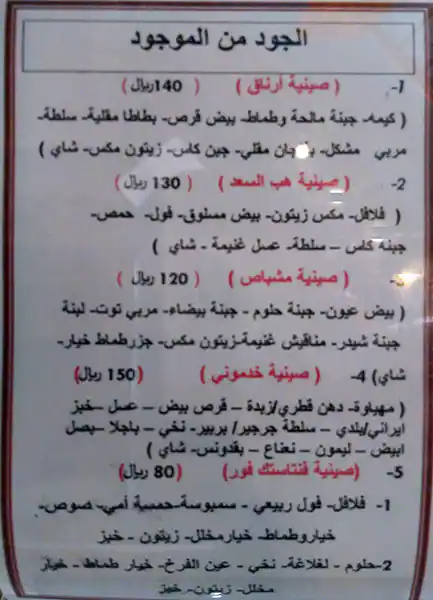 الجود من الموجود
1- ( صينية أرناق ) ( 140 ريال )
( كيمه- جبنة مالحة وطماط- بيض قرص- بطاطا مقلية- سلطة-
مربي مشكل- مقلي- جبن كاس- زيتون مكس- شاي )
2- ( صينية هب السعد ) ( 130 ريال )
( فلافل- مكس زيتون- بيض مسلوق- فول- حمص-
جبنة كاس – سلطة- عسل غنيمة - شاي )
( صينية مشباص ) ( 120 ريال )
( بيض عيون- جبنة حلوم - جبنة بيضاء- مربي توت- لبنة
جبنة شيدر- مناقيش غنيمة-زيتون مكس- جزرطماط خيار-
شاي) 4- ( صينية خدموني ) (150 ريال)
( مهياوة- دهن قطري/زبدة – قرص بيض – عسل –خبز
ايراني/بلدي – سلطة جرجير/ بربير- نخي – باجلا –بصل
ابيض – ليمون – نعناع – بقدونس- شاي )
5- (صينية فنتاستك فور) (80 ريال)
1- فلافل- فول ربيعي - سمبوسة-حمسة أمي- صوص-
خياروطماط- خيارمخلل- زيتون - خبز
2-حلوم - لغلاغة- نخي - عين الفرخ- خيار طماط - خيار
مخلل- زيتون- خبز